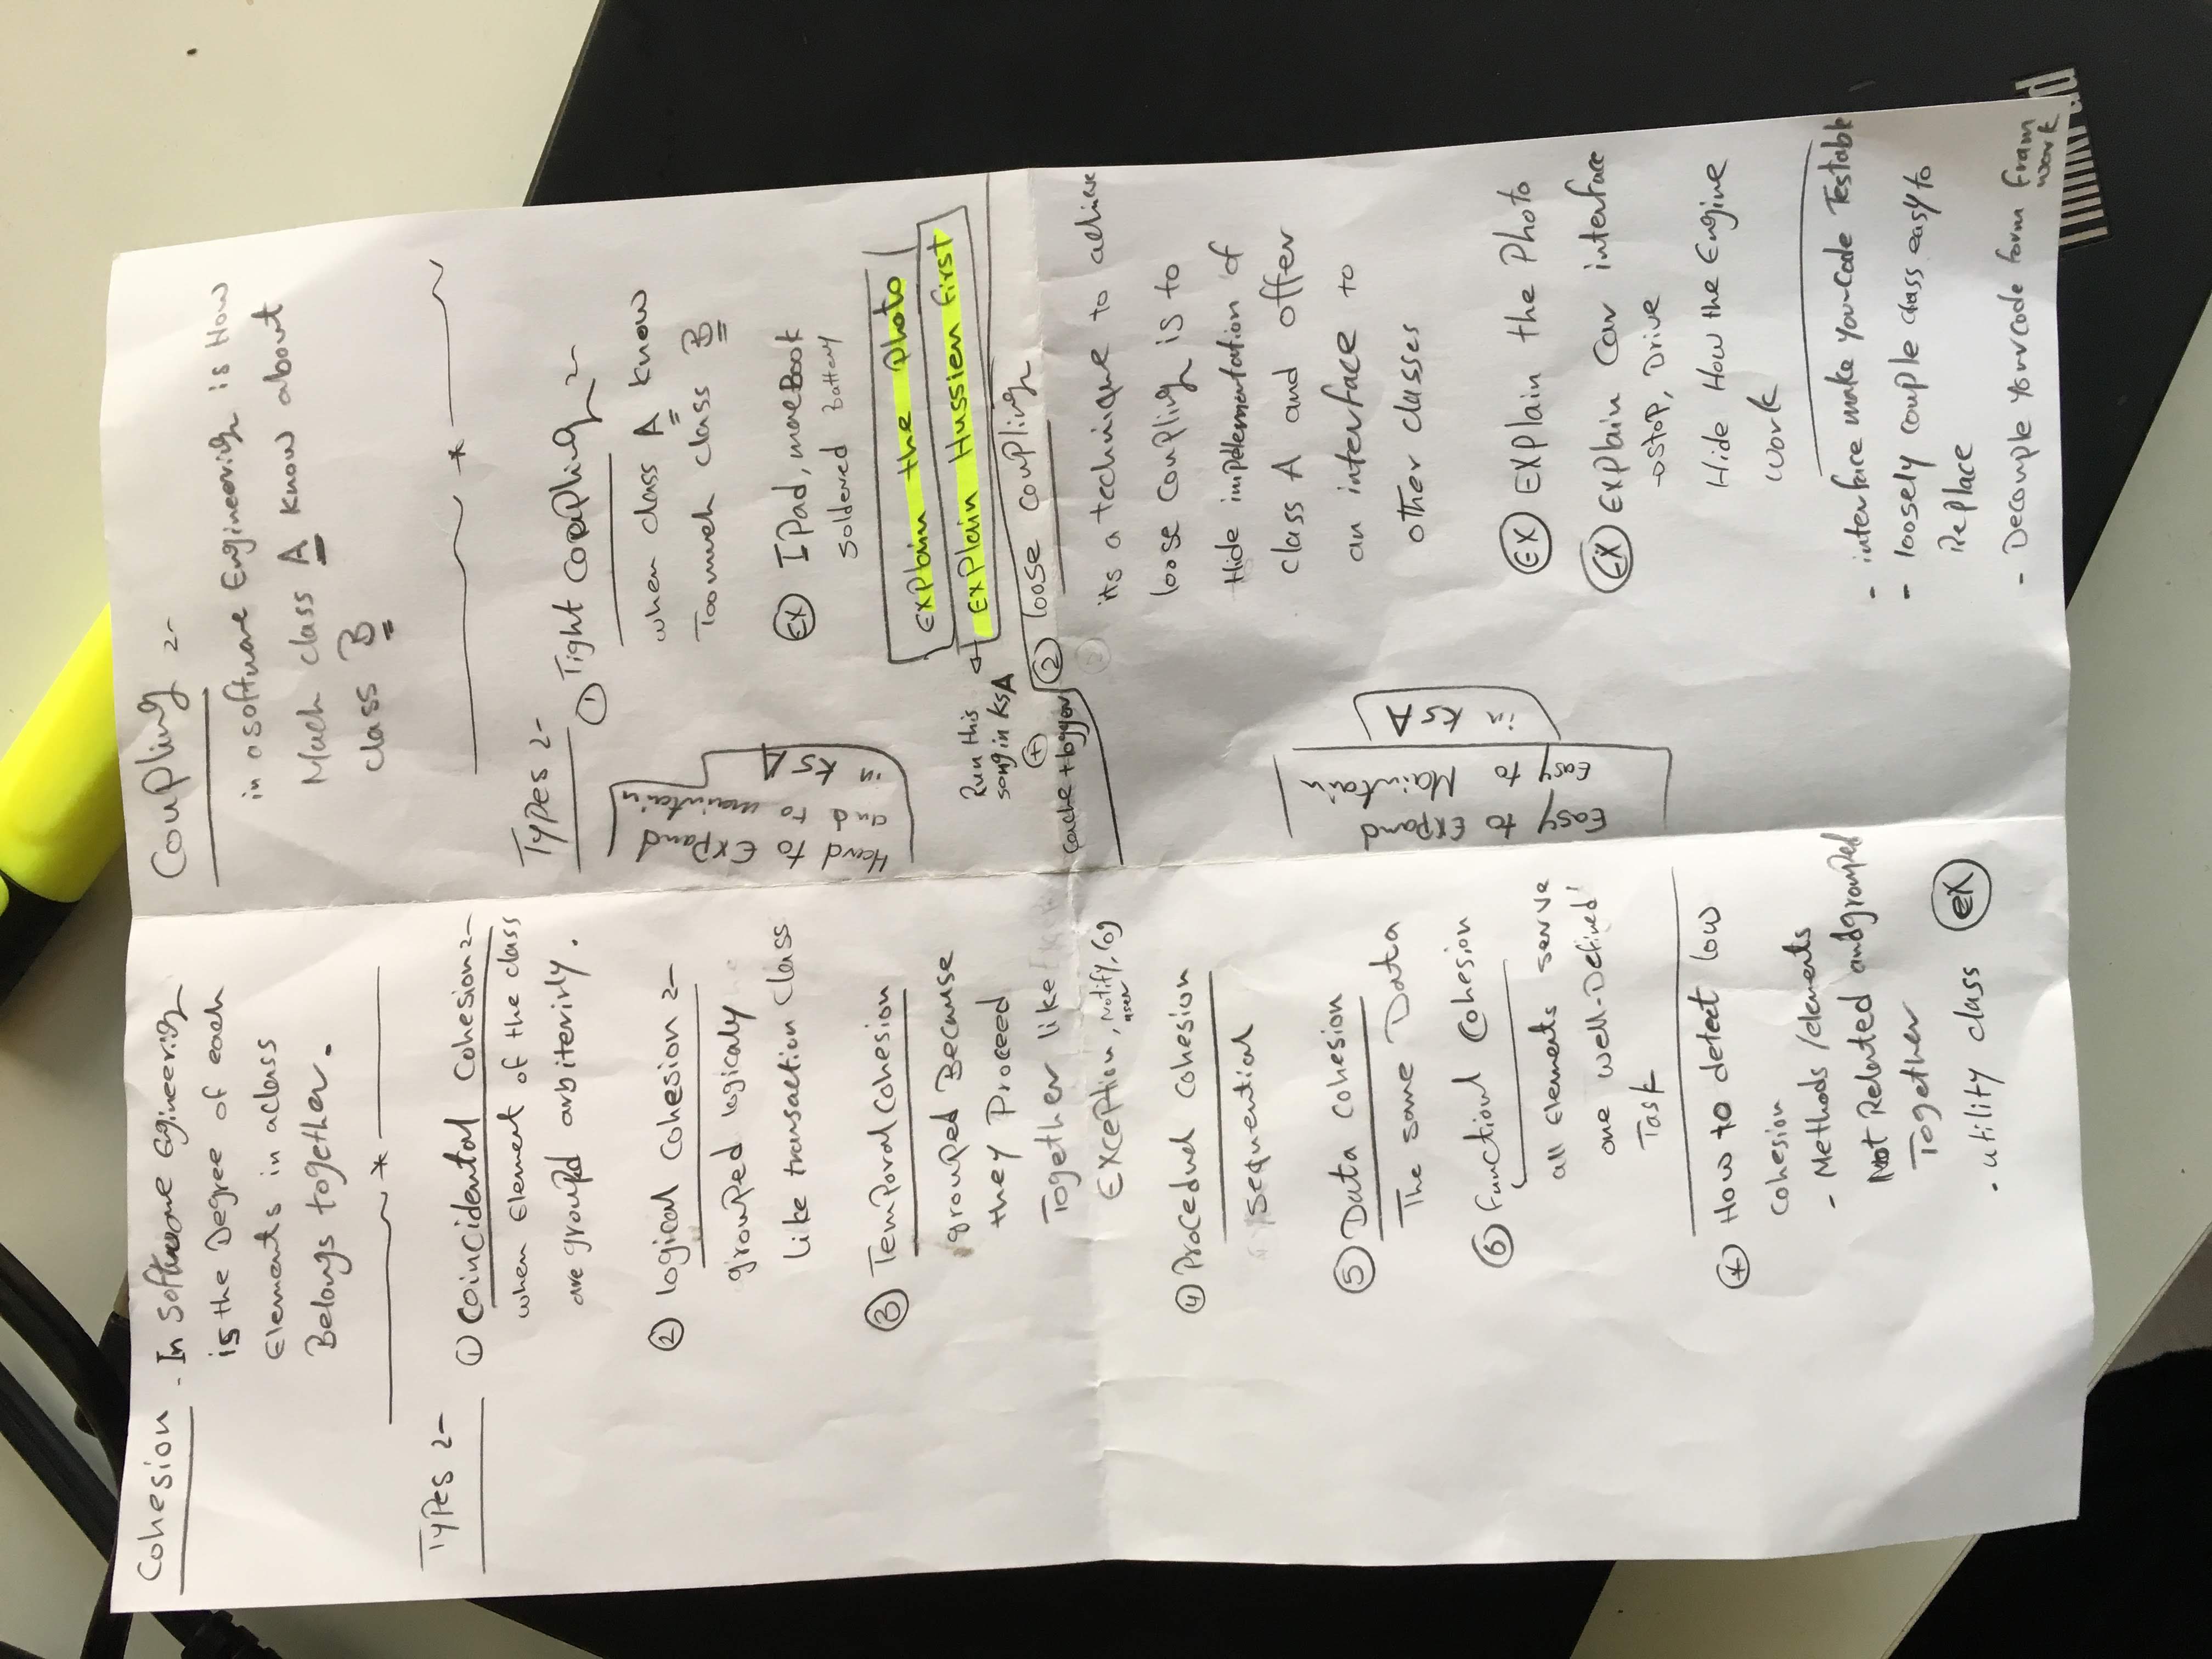 Cohesion - In Software Engineering
is the Degree of each
Elements in a class
Belongs together.
Types :-
① Coincidental Cohesion :-
when Element of the class
are grouped arbiterirly.
② logical cohesion :-
grouped logicaly
like transaction Class
③ Temporal Cohesion
grouped Because
they Proceed
Together like
Exception, Notify, log
user
④ Procedual cohesion
sequential
⑤ Data cohesion
The same Data
⑥ Functionl Cohesion
all Elements serve
one well-Defined
Task
* How to detect low
cohesion
- Methods /elements
Not Related and grouped
Together
- utility class ex
Coupling :-
in a software Engineering is How
Much class A know about
class B
Types :-
① Tight coupling :-
when class A know
Too much class B
Hard to Expand
and to maintain
in KSA
EX IPad, macBook
soldered Battery
Explain the Photo
Explain Hussien first
Run this
song in KSA
+
cache + logger
② loose coupling
its a technique to achieve
loose coupling is to
Hide implementation of
class A and offer
an interface to
other classes
Easy to Expand
Easy to Maintain
in KSA
EX Explain the Photo
EX Explain Car interface
→ Stop, Drive
Hide How the Engine
work
- interface make your code Testable
- loosely couple class easy to
Replace
- Decouple your code form Fram
work
ThinkPad